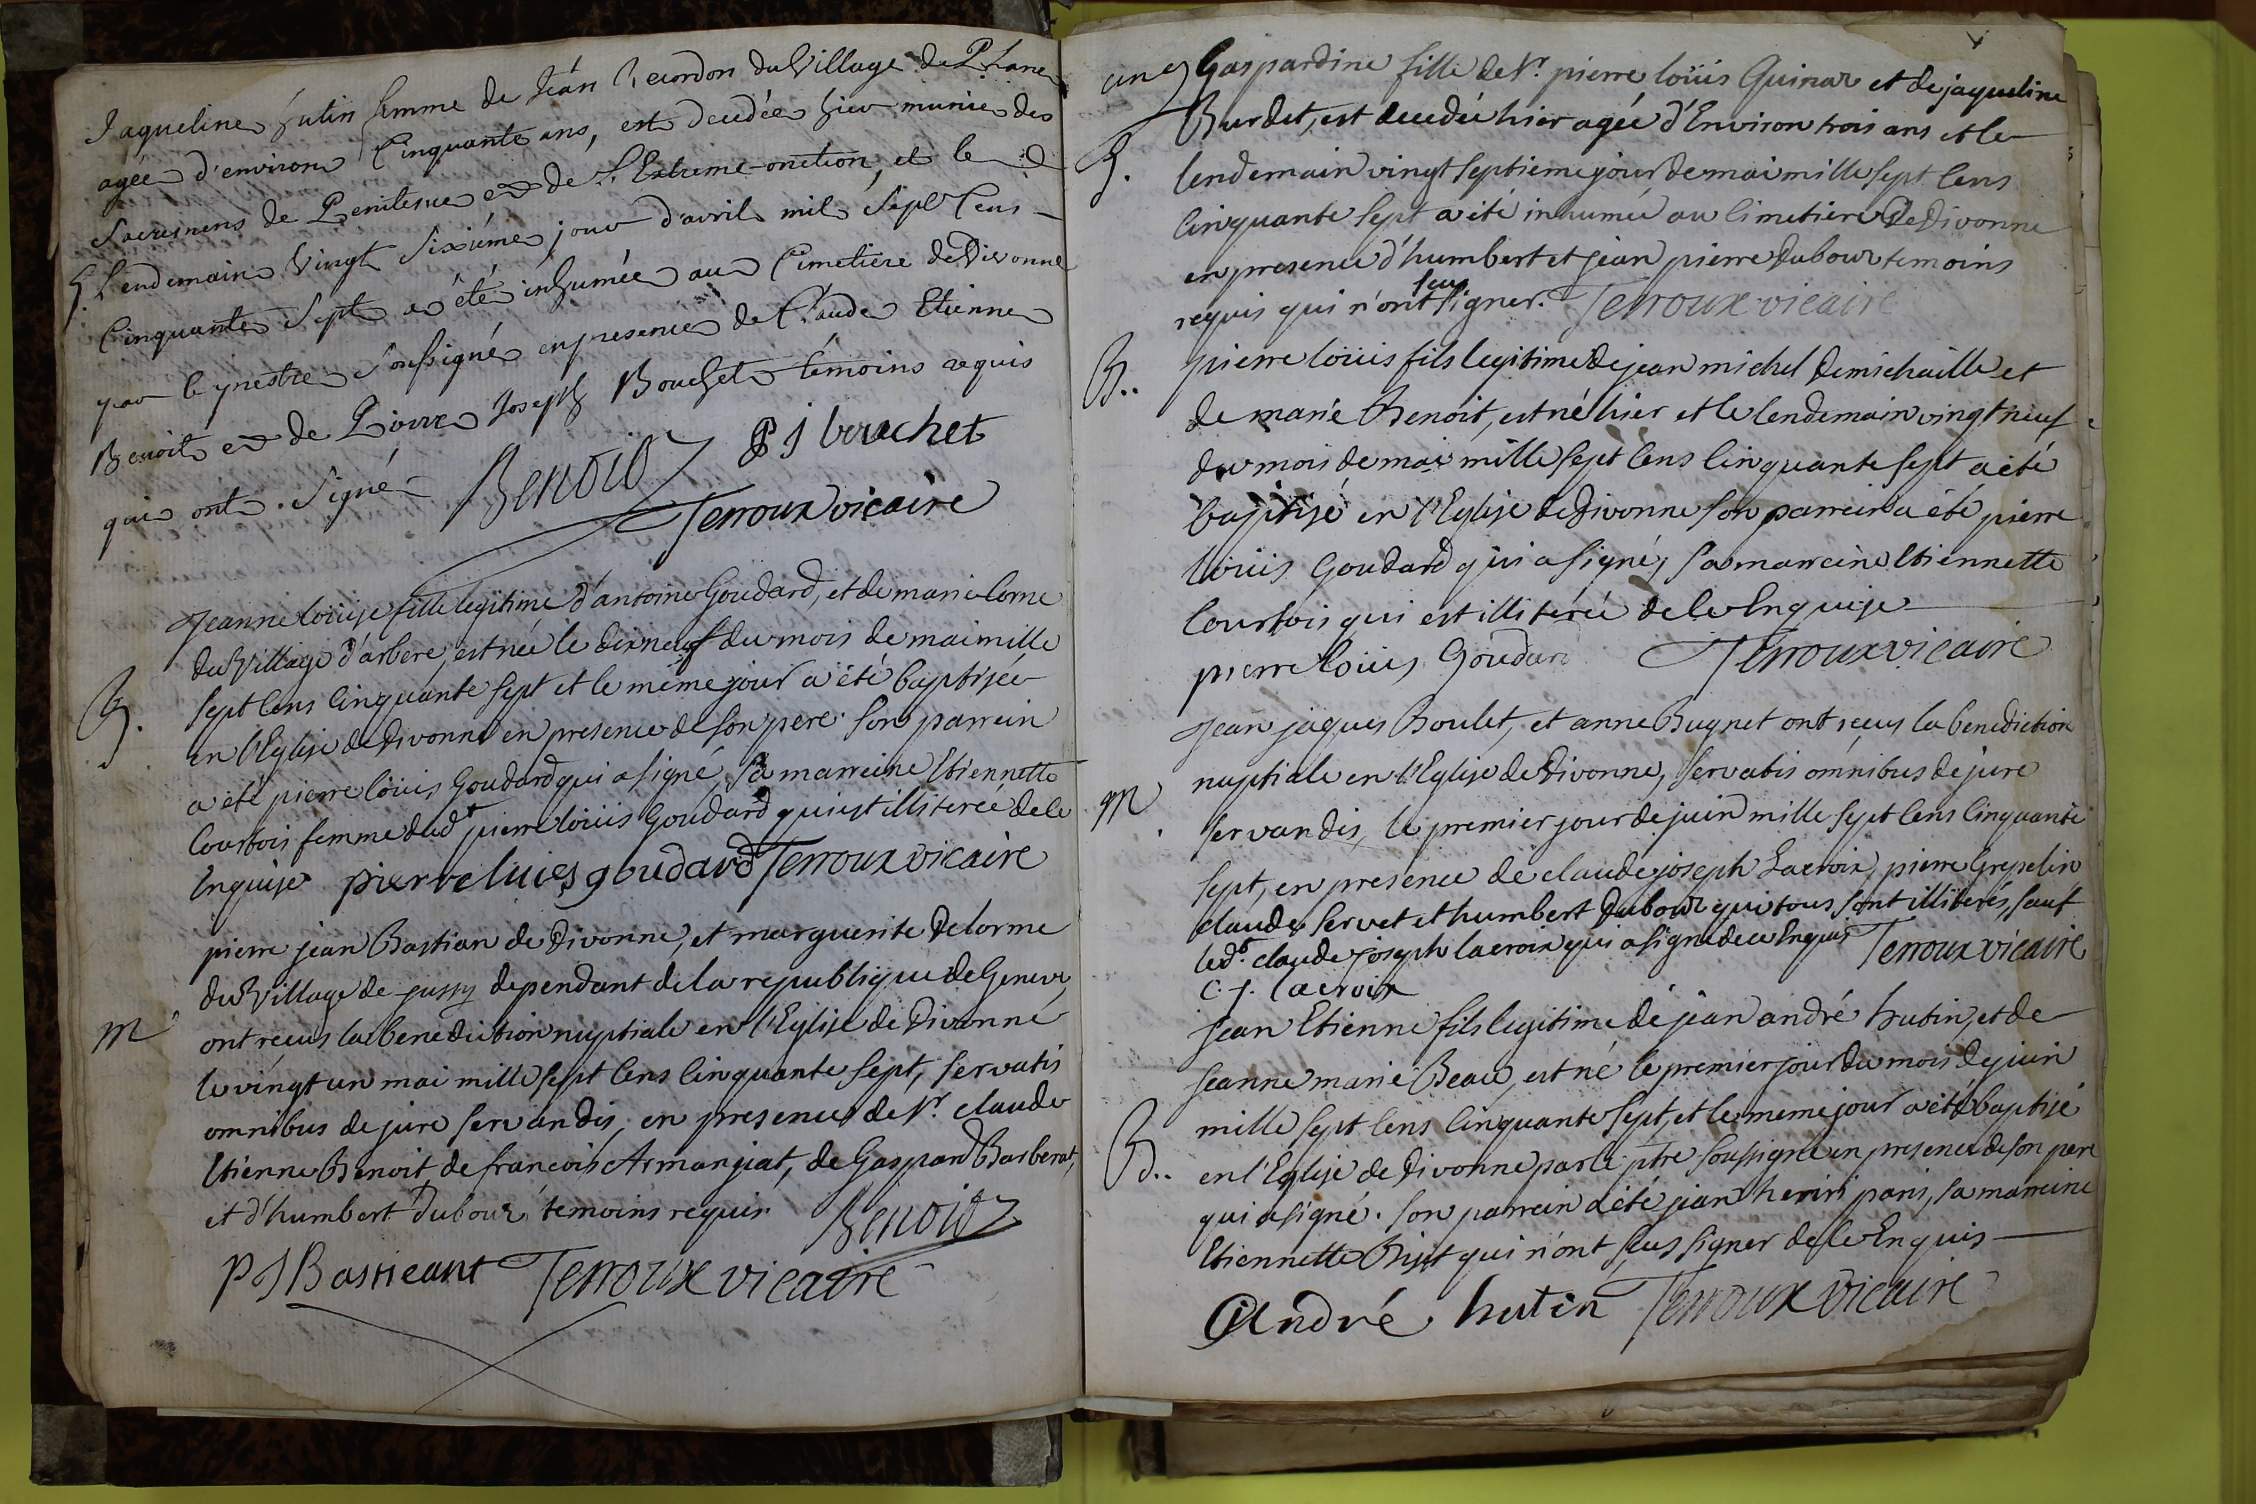 Jaqueline hutin femme de Jean Recordon du Village de
agée d'environ Cinquante ans, est decedée hier munie des
Sacremens de Penitence et de l'Extreme-onction, et le
S. Lendemain Vingt Sixiéme jour d'avril mil Sept Cens
Cinquante Sept a été inhumée au Cimetiere de Divonne
par le prestre Soussigné en presence de Claude Etienne
Benoit et de Pierre Joseph Bouchet témoins requis
qui ont Signé Benoit P J bouchet
Terroux vicaire
Jeanne loüise fille legitime d'antoine Goudard, et de marie
du Village d'arbere, est née le dixneuf du mois de mai mille
B. sept Cens Cinquante sept et le même jour a été baptisée
en l'Eglise de Divonne en presence de son pere. son parrein
a été pierre loüis Goudard qui a signé, sa marreine Etiennette
Courtois femme dudt pierre loüis Goudard qui est illiterée de ce
Enquise pierre luies goudard Terroux vicaire
pierre jean Bastian de Divonne, et marguerite Delorme
du Village de jussy dependant de la republique de Geneve,
M ont reçus la benediction nuptiale en l'Eglise de Divonne
le vingt un mai mille sept Cens Cinquante sept, servatis
omnibus de jure servandis, en presence de Sr. claude
Etienne Benoit, de francois Armanjat, de Gaspard Barberat,
et d'humbert Dubour temoins requis. Benoit
P J Bastieant Terroux vicaire
Gaspardine fille de Sr. pierre loüis Quinar et de jaqueline
Burdet, est decedée hier agée d'Environ trois ans et le
S. lendemain vingt septieme jour de mai mille sept Cens
Cinquante sept a été inhumée au Cimetiere De Divonne
en presence d'humbert et jean pierre Dubour temoins
requis qui n'ont sçus signer. Terroux vicaire
B.. pierre loüis fils legitime de jean michel Demichaille et
de marie Benoit, est né hier et le lendemain vingt neuf
du mois de mai mille sept Cens Cinquante sept a été
baptisé en l'Eglise de Divonne son parrein a été pierre
loüis Goudard qui a signé, sa marreine Etiennette
Courtois qui est illiterée de ce Enquise
pierre loüis Goudard Terroux vicaire
Jean jaques Boulet, et anne Bugnet ont reçus la benediction
nuptiale en l'Eglise de Divonne, servatis omnibus de jure
M. servandis, le premier jour de juin mille sept Cens Cinquante
sept, en presence de claude joseph Lacroix, pierre Grepelin
claude Servet et humbert Dubour qui tous sont illiterés, sauf
ledt. claude joseph lacroix qui a signé de ce Enquis Terroux vicaire
C. J. lacroix
Jean Etienne fils legitime de jean andré hutin, et de
Jeanne marie Beau, est né le premier jour du mois de juin
mille sept Cens Cinquante sept, et le meme jour a été baptisé
B.. en l'Eglise de Divonne par le ptre soussigné en presence de son pere
qui a signé. son parrein a été jean henri paris, sa marreine
Etiennette qui n'ont sçus signer de ce Enquis
André hutin Terroux vicaire